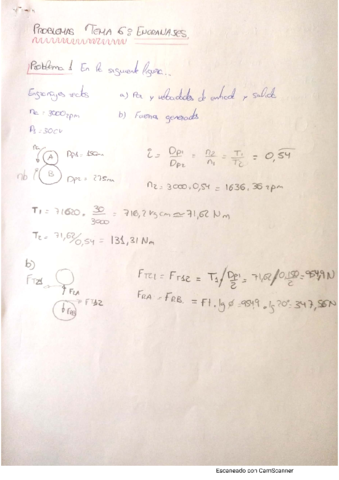 PROBLEMAS TEMA 6: ENGRANAJES.
Problema 1 En la siguiente figura...
Engranajes rectos a) Par y velocidades de entrada y salida
n1 = 3000 rpm b) Fuerzas generadas
P = 30 CV
A Dp1 = 150mm
B Dp2 = 275mm
i = Dp1/Dp2 = n2/n1 = T1/T2 = 0,54
n2 = 3000 · 0,54 = 1636,36 rpm
T1 = 71620 · 30/3000 = 716,2 kg cm = 71,62 Nm
T2 = 71,62/0,54 = 131,31 Nm
b)
FTE1 = FTS2 = T1 / Dp1/2 = 71,62 / 0,150/2 = 954,9 N
FRA = FRB = Ft · tg φ = 954,9 · tg 20º = 347,56 N
Escaneado con CamScanner